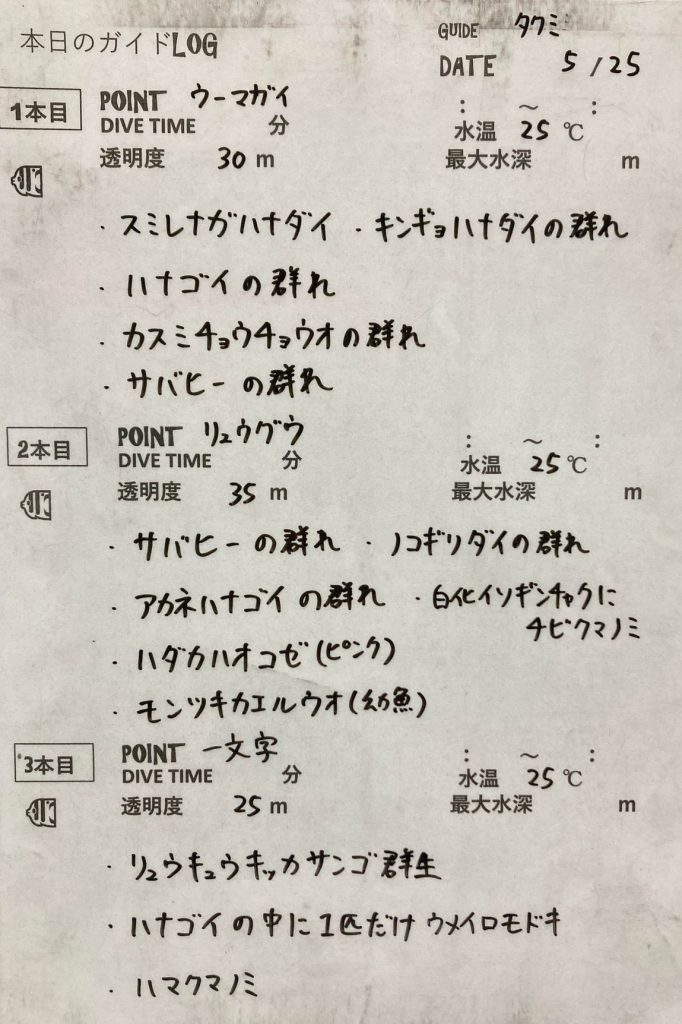 本日のガイドLOG
GUIDE タクミ
DATE 5/25
1本目 POINT ウーマガイ : ～ :
DIVE TIME 分 水温 25 ℃
透明度 30 m 最大水深 m
・スミレナガハナダイ ・キンギョハナダイの群れ
・ハナゴイの群れ
・カスミチョウチョウオの群れ
・サバヒーの群れ
2本目 POINT リュウグウ : ～ :
DIVE TIME 分 水温 25 ℃
透明度 35 m 最大水深 m
・サバヒーの群れ ・ノコギリダイの群れ
・アカネハナゴイの群れ ・白化イソギンチャクに
チビクマノミ
・ハダカハオコゼ(ピンク)
・モンツキカエルウオ(幼魚)
3本目 POINT 一文字 : ～ :
DIVE TIME 分 水温 25 ℃
透明度 25 m 最大水深 m
・リュウキュウキッカサンゴ群生
・ハナゴイの中に1匹だけウメイロモドキ
・ハマクマノミ